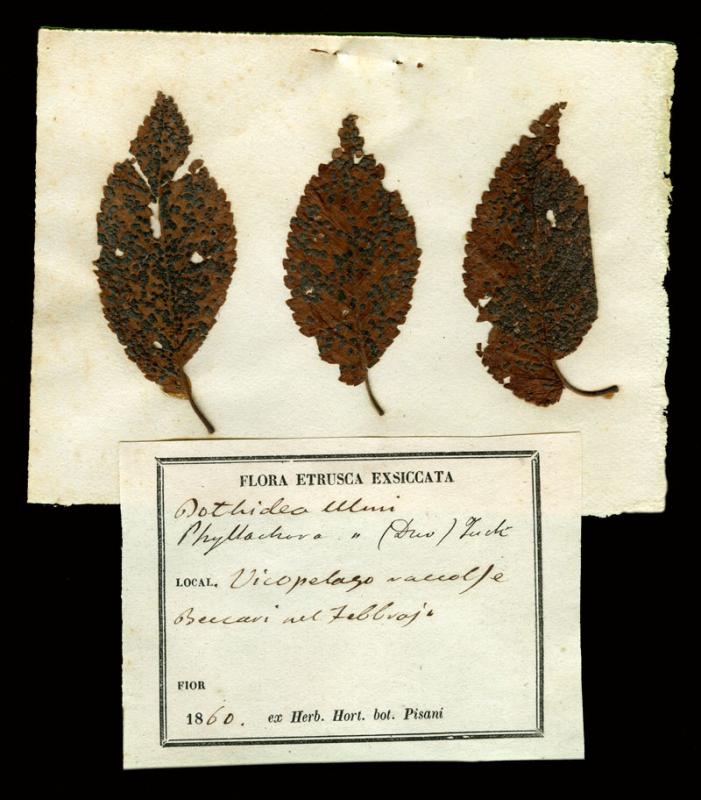 FLORA ETRUSCA EXSICCATA
Dothidea Ulmi
Phyllachora „ (Duv) Fuck
LOCAL. Vicopelago raccolse
Beccari nel Febbrajo
FIOR
1860. ex Herb. Hort. bot. Pisani